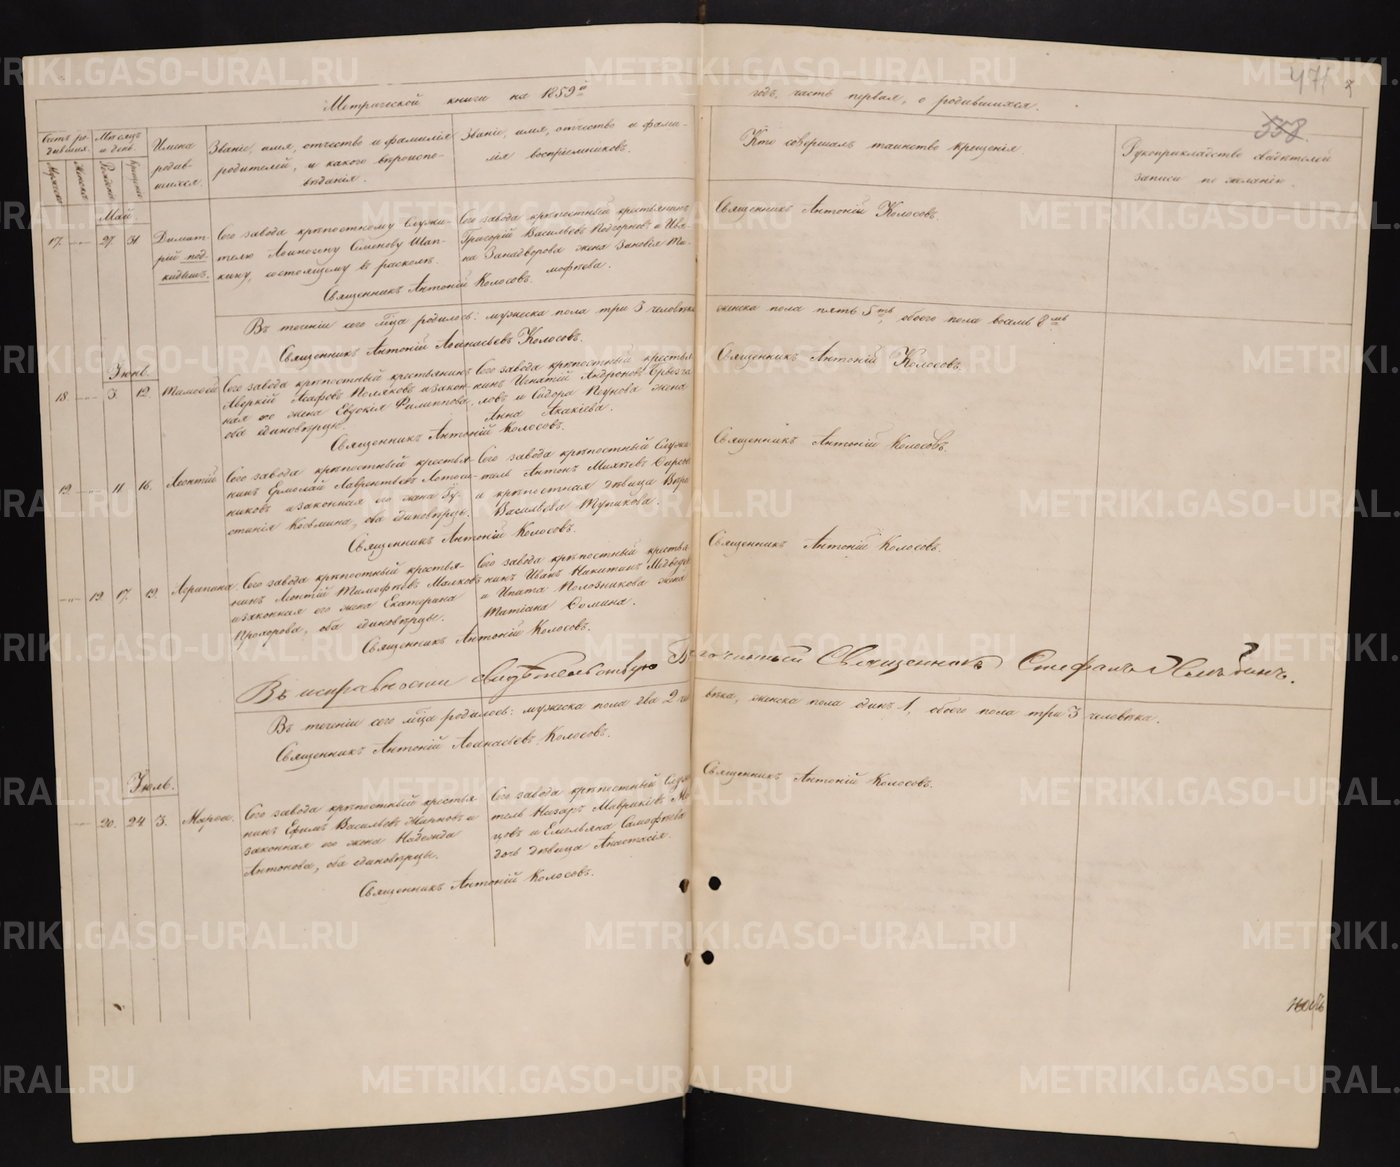 471
558.
Метрической книги на 1859й годъ, часть первая, о родившихся.
Счетъ родившихся.
Мужеска
Женска
Мѣсяцъ и день.
Рожденія
Крещенія
Имена родившихся.
Званіе, имя, отчество и фамилія
родителей, и какого вѣроиспо-
вѣданія.
Званіе, имя, отчество и фами-
лія воспріемниковъ.
Кто совершалъ таинство крещенія
Рукоприкладство свидѣтелей
записи по желанію.
Май.
17. 27. 31. Димит-
рій под-
кидышъ.
Сего завода крѣпостному Служи-
телю Семенову Шап-
кину, состоящему въ расколѣ.
Сего завода крѣпостный крестьянинъ
Григорій Васильевъ и Ива-
на Занадворова жена Зиновія Ти-
мофѣева.
Священникъ Антоній Колосовъ.
Священникъ Антоній Колосовъ
Въ теченіи сего мѣсяца родилось: мужеска пола три 3 человѣка женска пола пять 5ть, обоего пола восмь 8мь
Священникъ Антоній Аѳанасьевъ Колосовъ.
Іюнь.
18. 3. 12. Тимоѳей
Сего завода крѣпостный крестьянинъ
Аверкій Поляковъ и закон-
ная его жена Евдокія Филиппова,
оба единовѣрцы.
Сего завода крѣпостный крестья-
нинъ Игнатій Андроновъ
и Сидора жена
Анна Акакіева.
Священникъ Антоній Колосовъ.
Священникъ Антоній Колосовъ.
19. 11. 16. Леонтій
Сего завода крѣпостный крестья-
нинъ Ермолай Лаврентьевъ
и законная его жена Іу-
стинія Козьмина, оба единовѣрцы.
Сего завода крѣпостный Служи-
тель Антонъ
и крѣпостная дѣвица Вѣра
Васильева Тупикова.
Священникъ Антоній Колосовъ.
Священникъ Антоній Колосовъ.
19. 17. 19. Агрипина
Сего завода крѣпостный крестья-
нинъ Леонтій Тимофѣевъ Малковъ
и законная его жена Екатерина
Прохорова, оба единовѣрцы.
Сего завода крѣпостный крестья-
нинъ Иванъ Никитинъ Медвѣдевъ
и Ипата Полозникова жена
Татіана Сомина.
Священникъ Антоній Колосовъ.
Священникъ Антоній Колосовъ.
Въ исправности свидѣтельствую Благочинный Священникъ Стефанъ
Въ теченіи сего мѣсяца родилось: мужеска пола два 2 человѣка, женска пола одинъ 1, обоего пола три 3 человѣка.
Священникъ Антоній Аѳанасьевъ Колосовъ.
Іюль.
20. 24 3. Марѳа.
Сего завода крѣпостный крестья-
нинъ Ефимъ Васильевъ Жирновъ и
законная его жена Надежда
Антонова, оба единовѣрцы.
Сего завода крѣпостный Служи-
тель Назаръ Маврикіевъ
и Емельяна Самофѣева
дочь дѣвица Анастасія.
Священникъ Антоній Колосовъ.
Священникъ Антоній Колосовъ.
METRIKI.GASO-URAL.RU